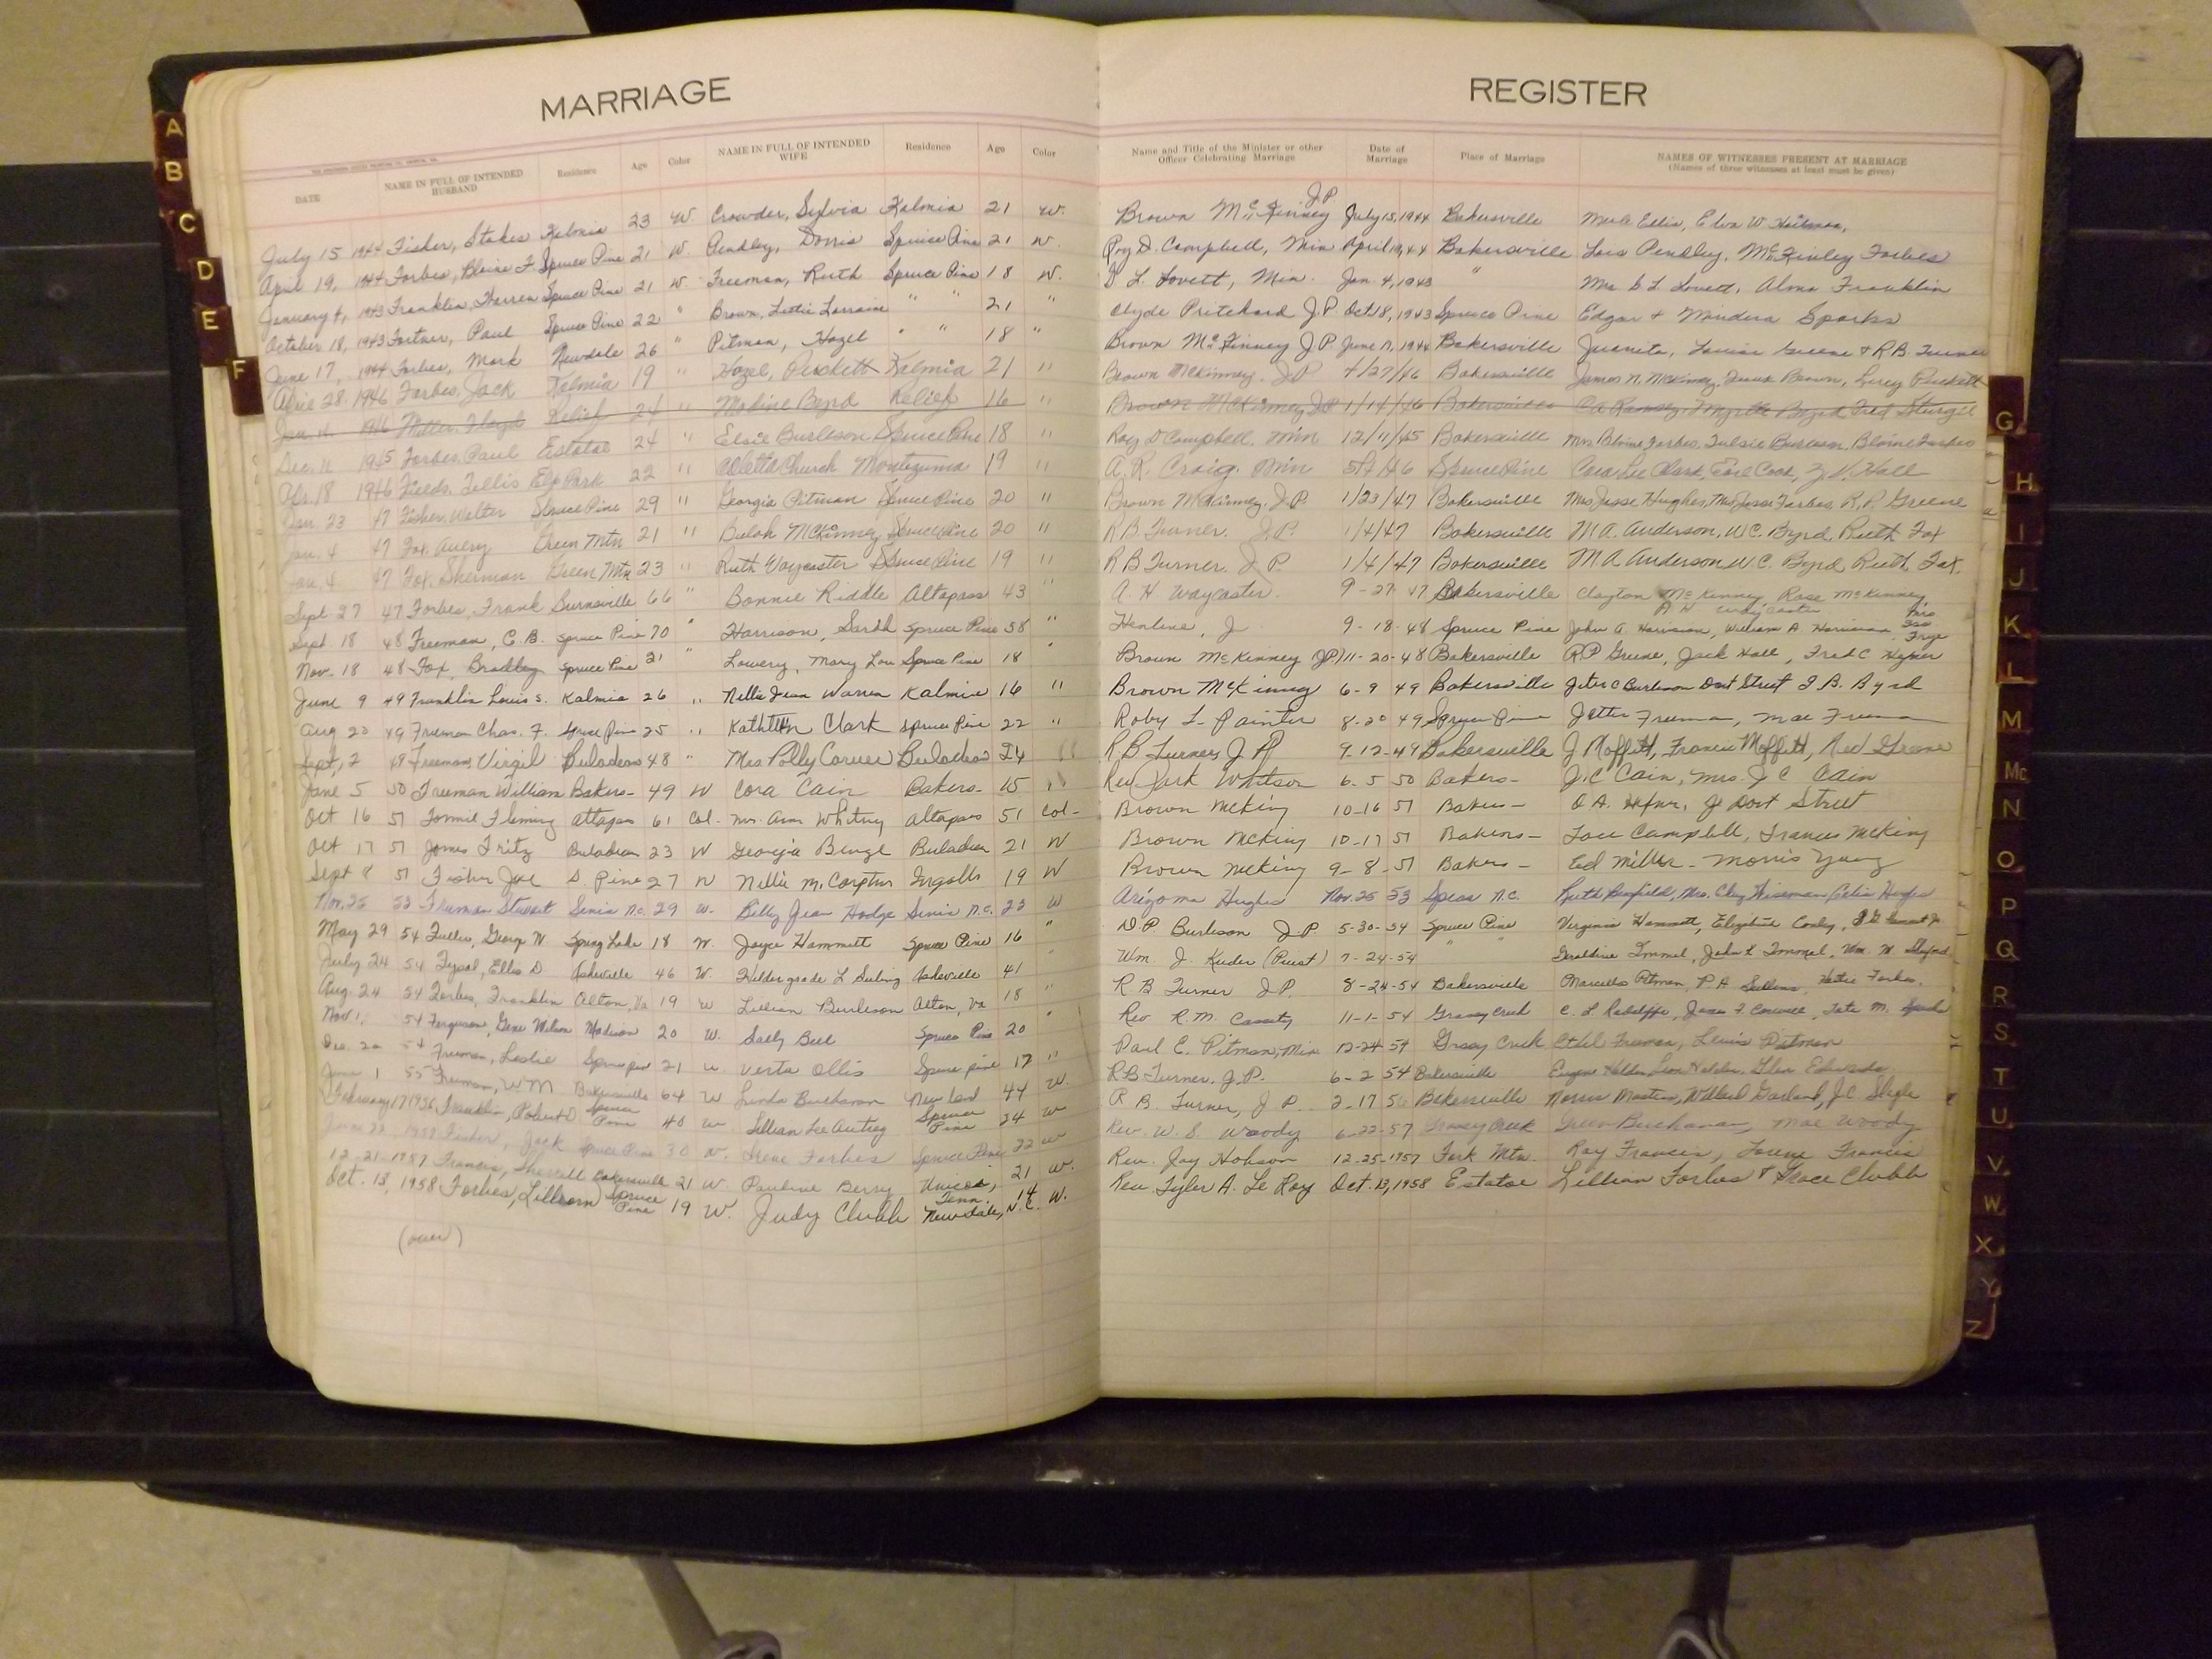 MARRIAGE
DATE NAME IN FULL OF INTENDED HUSBAND Residence Age Color NAME IN FULL OF INTENDED WIFE Residence Age Color
July 15 1944 Fisher, Stokes Kalmia 23 W. Crowder, Sylvia Kalmia 21 W.
April 19, 1944 Forbes, Blaine F. Spruce Pine 21 W. Pendley, Dorris Spruice Pine 21 W.
January 4, 1943 Franklin, Warren Spruce Pine 21 W. Freeman, Ruth Spruce Pine 18 W.
October 18, 1943 Fortner, Paul Spruce Pine 22 " Brown, Lettie Lorraine " " 21 "
June 17, 1944 Forbes, Mark Newdale 26 " Pitman, Hazel " " 18 "
April 28 1946 Forbes, Jack Kalmia 19 " Hazel, Puckett Kalmia 21 "
Jan. 11 1946 Miller, Floyd Relief 24 " Madine Byrd Relief 16 "
Dec. 11 1945 Forbes, Paul Estatoe 24 " Elsie Burleson Spruce Pine 18 "
Apr. 18 1946 Fields, Tellis Elk Park 22 " Coletta Church Montezuma 19 "
Jan. 23 47 Fisher, Walter Spruce Pine 29 " Georgia Pitman Spruce Pine 20 "
Jan. 4 47 Fox, Avery Green Mtn 21 " Bulah McKinney Spruce Pine 20 "
Jan. 4 47 Fox, Sherman Green Mtn 23 " Ruth Waycaster Spruce Pine 19 "
Sept 27 47 Forbes, Frank Burnsville 66 " Bonnie Riddle Altapass 43 "
Sept. 18 48 Freeman, C. B. Spruce Pine 70 " Harrison, Sarah Spruce Pine 58 "
Nov. 18 48 Fox, Bradley Spruce Pine 21 " Lowery, Mary Lou Spruce Pine 18 "
June 9 49 Franklin Louis S. Kalmia 26 " Nellie Jean Warren Kalmia 16 "
Aug 20 49 Freeman Chas. F. Spruce Pine 25 " Kathleen Clark Spruce Pine 22 "
Sept, 2 49 Freeman, Virgil Buladean 48 " Mrs Polly Buladean 24 "
June 5 50 Freeman William Bakers- 49 W Cora Cain Bakers- 15 "
Oct 16 51 Tommie Fleming Altapass 61 Col. Mrs. Ann Whitney Altapass 51 Col-
Oct 17 51 James Fritz Buladean 23 W Georgia Buladean 21 W
Sept 8 51 Fisher Joe S. Pine 27 W Nellie Ingalls 19 W
Nov. 25 53 Freeman Stewart N.C. 29 W. Billy Jean Hodge N.C. 23 W
May 29 54 Fuller, George W Spring Lake 18 W. Joyce Hammett Spruce Pine 16 "
July 24 54 Ellis D Asheville 46 W. Asheville 41 "
Aug. 24 54 Forbes, Franklin Alton, Va 19 W Lillian Burleson Alton, Va 18 "
Nov 1, 54 Ferguson, Gene Wilson Madison 20 W. Sally Buel Spruce Pine 20 "
Dec. 20 54 Freeman, Leslie Spruce pine 21 W Verta Ollis Spruce pine 17 "
June 1 55 Freeman, W M Bakersville 64 W Linda Buchanan Newland 44 W.
February 17 1956, Franklin, Robert D Spruce Pine 40 W Lillian Lee Autrey Spruce Pine 24 W
June 22, 1957 Fisher, Jack Spruce Pine 30 W. Irene Forbes Spruce Pine 22 W
12-21-1957 Francis, Sherrill Bakersville 21 W. Pauline Berry Unicoi, Tenn. 21 W.
Oct. 13, 1958 Forbes, Spruce Pine 19 W. Judy Chubb Newdale, N.C. 14 W.
(over)
REGISTER
Name and Title of the Minister or other Officer Celebrating Marriage Date of Marriage Place of Marriage NAMES OF WITNESSES PRESENT AT MARRIAGE
(Names of three witnesses at least must be given)
Brown McKinney J.P. July 15, 1944 Bakersville Merle Ellis, Elva W.
Roy D. Campbell, Min April 19, 44 Bakersville Lois Pendley, McKinley Forbes
D L. Lovett, Min. Jan. 4, 1943 " Mrs D L Lovett, Alma Franklin
Clyde Pritchard J.P Oct 18, 1943 Spruce Pine Edgar + Sparks
Brown McKinney J P. June 17, 1944 Bakersville Juanita, Louise Greene & R.B. Turner
Brown McKinney, J.P 4/27/46 Bakersville James N. McKinney, Frank Brown, Puckett
Brown McKinney J.P 1/14/46 Bakersville Myrtle Byrd Fred Sturgil
Roy D Campbell, Min 12/11/45 Bakersville Mrs Blaine Forbes, Burleson, Blaine Forbes
A. R. Craig. Min 46 Spruce Pine Cora Lee Clark, Earl Cook, Hall
Brown McKinney, J.P. 1/23/47 Bakersville Mrs Jesse Hughes, Mrs Jesse Forbes, R. P. Greene
R B Turner. J.P. 1/4/47 Bakersville M. A. Anderson, W.C. Byrd, Ruth Fox
R B Turner. J P. 1/4/47 Bakersville M A Anderson, W.C. Byrd, Ruth, Fox.
A. H Waycaster. 9-27 47 Bakersville Clayton McKinney, Rose McKinney
A H Waycaster
Henline, J 9-18-48 Spruce Pine John A. Harrison, William A. Harrison, Frye
Brown McKinney (J.P.) 11-20-48 Bakersville R.P Greene, Jack Hall, Fred C
Brown McKinney 6-9 49 Bakersville Jeter C Burleson Dout Street J. B. Byrd
Roby L. Painter 8-20 49 Spruce Pine Jetter Freeman, Mae Freeman
R B Turner, J P 9-12-49 Bakersville J Moffitt, Francis Moffitt, Red Greene
Rev Park Whitson 6-5 50 Bakers- J.C Cain, Mrs. J C Cain
Brown McKiny 10-16 51 Bakers- Dout Street
Brown McKiny 10-17 51 Bakers- Campbell, Frances McKiny
Brown McKiny 9-8-51 Bakers- Ed Miller - Morris Young
Arizona Hughes Nov. 25 53 Spear N.C. Ruth Benfield, Mrs. Clay Wiseman, Hughes
D. P. Burleson J.P 5-30-54 Spruce Pine Virginia Hammett, Elizabeth Conley,
Wm J. Kuder (Priest) 7-24-54 " " Geraldine Tommel, John L Tommel, Wm. W.
R B Turner J.P. 8-24-54 Bakersville Marcella Pitman, P.A Hattie Forbes.
Rev R.M. 11-1-54 Grassy Creek C. L Radcliffe, James T. Tate M.
Paul E. Pitman, Min 12-24 54 Grassy Creek Ethel Freeman, Lewis Pitman
R B Turner. J.P. 6-2 54 Bakersville Eugene Holden, Leon Holden, Glen Edwards
R B. Turner, J P. 2-17 56 Bakersville Norris Masters, Willard Garland, J.C. Slagle
Rev. W. S. Woody 6-22-57 Grassy Creek Buchanan, Mae Woody
Rev. Jay Hobson 12-25-1957 Fork Mtn. Ray Francis, Francis
Rev. Tyler A. Le Roy Oct. 13, 1958 Estatoe Lillian Forbes & Grace Chubb
A
B
C
D
E
F
G
H
I
J
K
L
M
Mc
N
O
P
Q
R
S
T
U
V
W
X
Y
Z